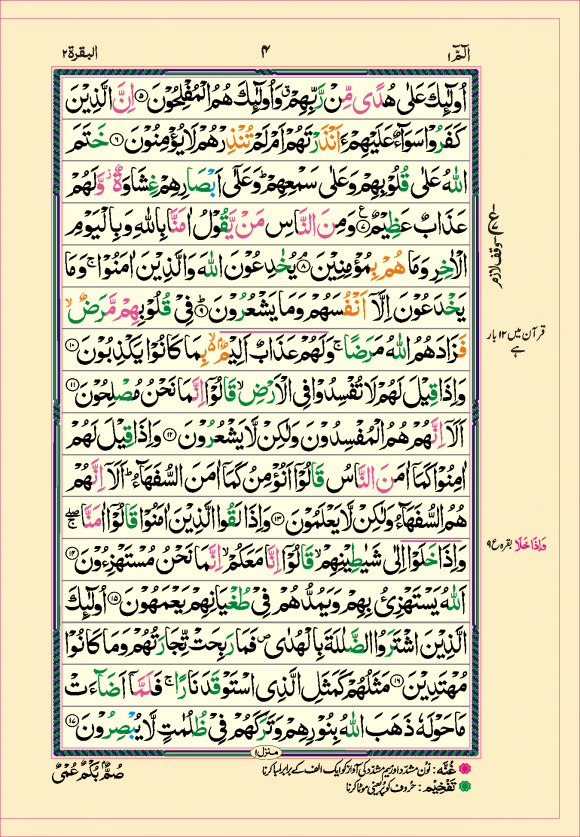 الٓمّٓ ۱ ۴ البقرة ۲
اُولٰٓئِكَ عَلٰى هُدًى مِّنْ رَّبِّهِمْ ۗ وَاُولٰٓئِكَ هُمُ الْمُفْلِحُوْنَ ۝۵ اِنَّ الَّذِيْنَ
كَفَرُوْا سَوَآءٌ عَلَيْهِمْ ءَاَنْذَرْتَهُمْ اَمْ لَمْ تُنْذِرْهُمْ لَا يُؤْمِنُوْنَ ۝۶ خَتَمَ
اللّٰهُ عَلٰى قُلُوْبِهِمْ وَعَلٰى سَمْعِهِمْ ؕ وَعَلٰٓى اَبْصَارِهِمْ غِشَاوَةٌ ؗ وَّلَهُمْ
عَذَابٌ عَظِيْمٌ ۝۷ وَمِنَ النَّاسِ مَنْ يَّقُوْلُ اٰمَنَّا بِاللّٰهِ وَبِالْيَوْمِ
الْاٰخِرِ وَمَا هُمْ بِمُؤْمِنِيْنَ ۝۸ يُخٰدِعُوْنَ اللّٰهَ وَالَّذِيْنَ اٰمَنُوْا ۚ وَمَا
يَخْدَعُوْنَ اِلَّاۤ اَنْفُسَهُمْ وَمَا يَشْعُرُوْنَ ۝۹ فِيْ قُلُوْبِهِمْ مَّرَضٌ ۙ
فَزَادَهُمُ اللّٰهُ مَرَضًا ۚ وَلَهُمْ عَذَابٌ اَلِيْمٌ ۢ ۙ بِمَا كَانُوْا يَكْذِبُوْنَ ۝۱۰
وَاِذَا قِيْلَ لَهُمْ لَا تُفْسِدُوْا فِي الْاَرْضِ ۙ قَالُوْۤا اِنَّمَا نَحْنُ مُصْلِحُوْنَ ۝۱۱
اَلَاۤ اِنَّهُمْ هُمُ الْمُفْسِدُوْنَ وَلٰكِنْ لَّا يَشْعُرُوْنَ ۝۱۲ وَاِذَا قِيْلَ لَهُمْ
اٰمِنُوْا كَمَاۤ اٰمَنَ النَّاسُ قَالُوْۤا اَنُؤْمِنُ كَمَاۤ اٰمَنَ السُّفَهَآءُ ؕ اَلَاۤ اِنَّهُمْ
هُمُ السُّفَهَآءُ وَلٰكِنْ لَّا يَعْلَمُوْنَ ۝۱۳ وَاِذَا لَقُوا الَّذِيْنَ اٰمَنُوْا قَالُوْۤا اٰمَنَّا ۖۚ
وَاِذَا خَلَوْا اِلٰى شَيٰطِيْنِهِمْ ۙ قَالُوْۤا اِنَّا مَعَكُمْ ۙ اِنَّمَا نَحْنُ مُسْتَهْزِءُوْنَ ۝۱۴
اَللّٰهُ يَسْتَهْزِئُ بِهِمْ وَيَمُدُّهُمْ فِيْ طُغْيَانِهِمْ يَعْمَهُوْنَ ۝۱۵ اُولٰٓئِكَ
الَّذِيْنَ اشْتَرَوُا الضَّلٰلَةَ بِالْهُدٰى ۪ فَمَا رَبِحَتْ تِّجَارَتُهُمْ وَمَا كَانُوْا
مُهْتَدِيْنَ ۝۱۶ مَثَلُهُمْ كَمَثَلِ الَّذِي اسْتَوْقَدَ نَارًا ۚ فَلَمَّاۤ اَضَآءَتْ
مَا حَوْلَهٗ ذَهَبَ اللّٰهُ بِنُوْرِهِمْ وَتَرَكَهُمْ فِيْ ظُلُمٰتٍ لَّا يُبْصِرُوْنَ ۝۱۷
وقف لازم
قرآن میں ۱۲ بار
ہے
وَاِذَا خَلَا بقرہ ع ۹
منزل ۱
صُمٌّۢ بُكْمٌ عُمْيٌ
غُنَّہ: نون مشدد اور میم مشدد کی آواز کو ایک الف کے برابر لمبا کرنا
تَفْخِیْم: حروف کو پُر یعنی موٹا کرنا